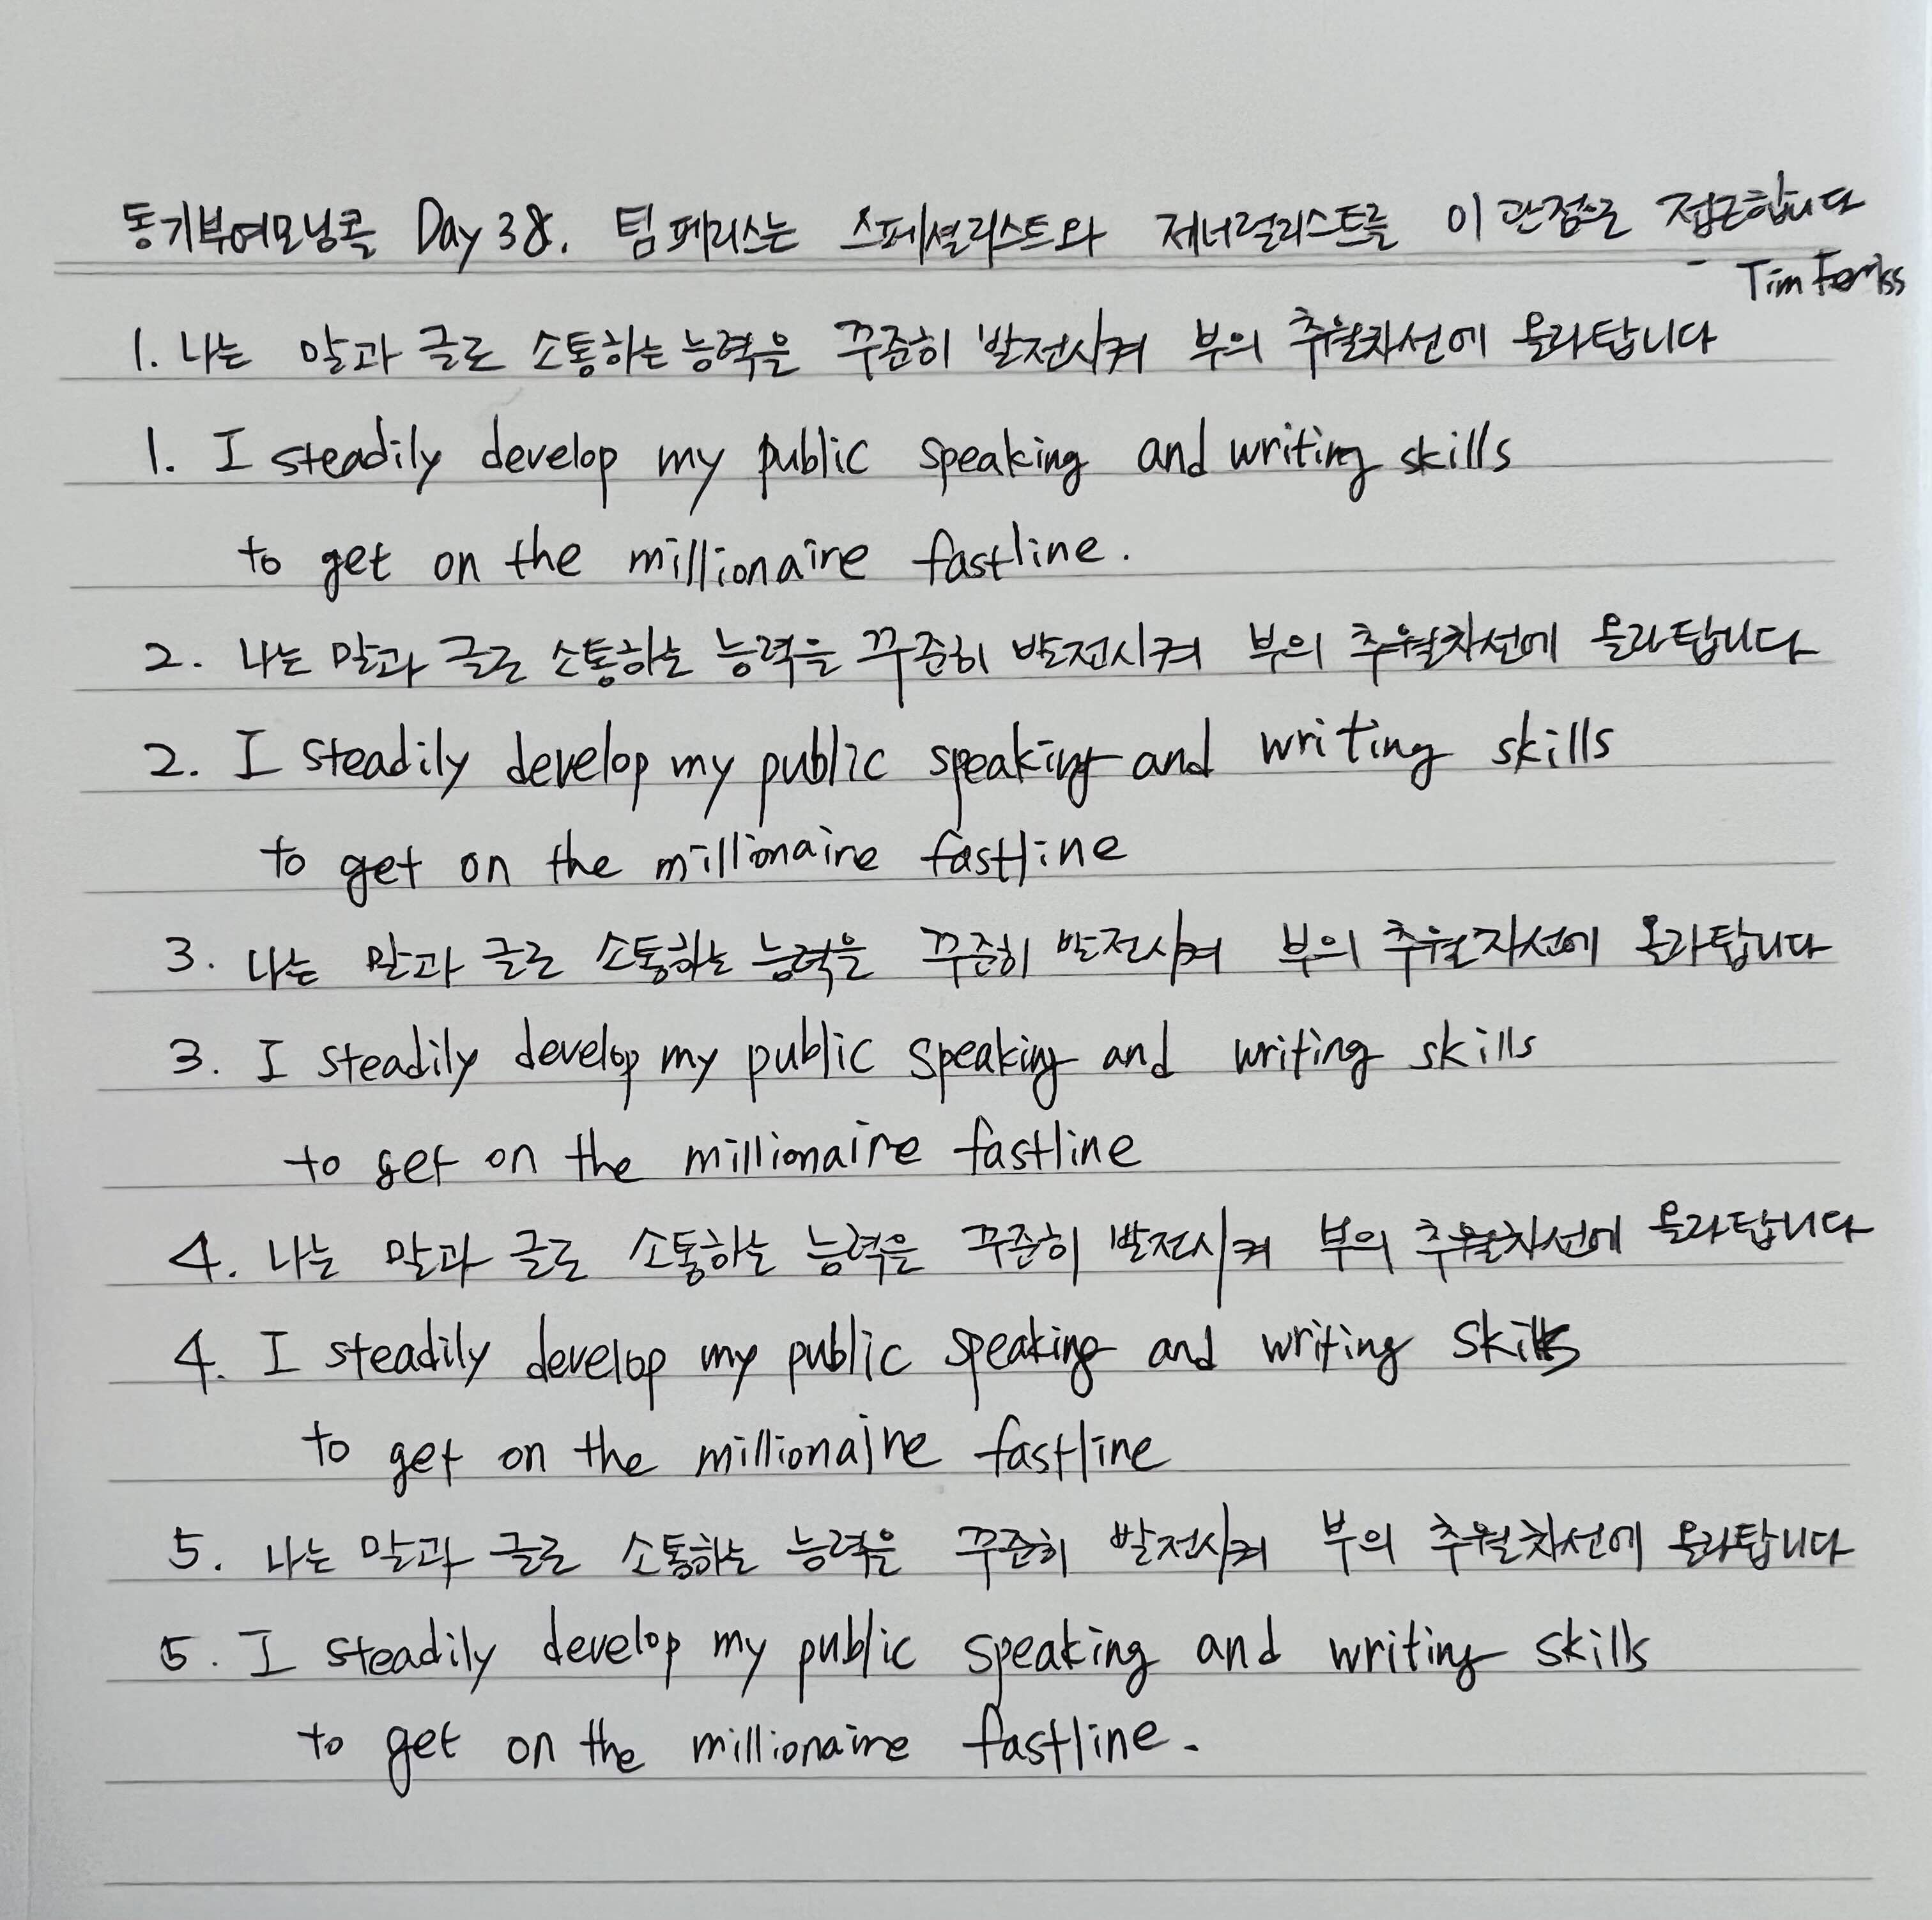 동기부여모닝콜 Day 38. 팀 페리스는 스페셜리스트와 제너럴리스트를 이 관점으로 접근합니다
- Tim Ferriss
1. 나는 말과 글로 소통하는 능력을 꾸준히 발전시켜 부의 추월차선에 올라탑니다
1. I steadily develop my public speaking and writing skills
to get on the millionaire fastline.
2. 나는 말과 글로 소통하는 능력을 꾸준히 발전시켜 부의 추월차선에 올라탑니다
2. I steadily develop my public speaking and writing skills
to get on the millionaire fastline
3. 나는 말과 글로 소통하는 능력을 꾸준히 발전시켜 부의 추월차선에 올라탑니다
3. I steadily develop my public speaking and writing skills
to get on the millionaire fastline
4. 나는 말과 글로 소통하는 능력을 꾸준히 발전시켜 부의 추월차선에 올라탑니다
4. I steadily develop my public speaking and writing skills
to get on the millionaire fastline
5. 나는 말과 글로 소통하는 능력을 꾸준히 발전시켜 부의 추월차선에 올라탑니다
5. I steadily develop my public speaking and writing skills
to get on the millionaire fastline.